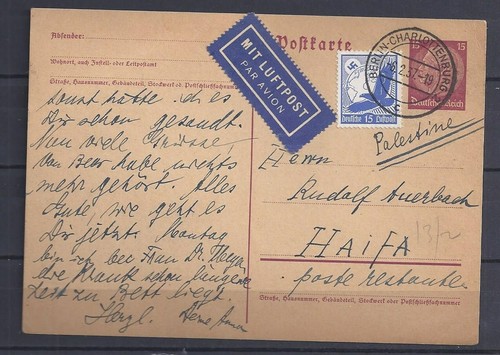 Absender:
Wohnort, auch Zustell- oder Leitpostamt
Straße, Hausnummer, Gebäudeteil, Stockwerk od. Postschließfachnummer
Postkarte
MIT LUFTPOST
PAR AVION
Deutsche 15 Luftpost
BERLIN-CHARLOTTENBURG
2.37.-19
15 15
Deutsches Reich
Palestine
Herrn
Rudolf Auerbach
HAIFA
13/2
poste restante
Straße, Hausnummer, Gebäudeteil, Stockwerk oder Postschließfachnummer
sonst hätte ich es
Dir schon gesandt.
Nun viele Grüsse,
von Beer habe nichts
mehr gehört. Alles
Gute, wie geht es
Dir jetzt. Montag
bin ich bei Frau Dr.
die Kranke schon längere
Zeit zu Bett liegt.
Herzl. Deine